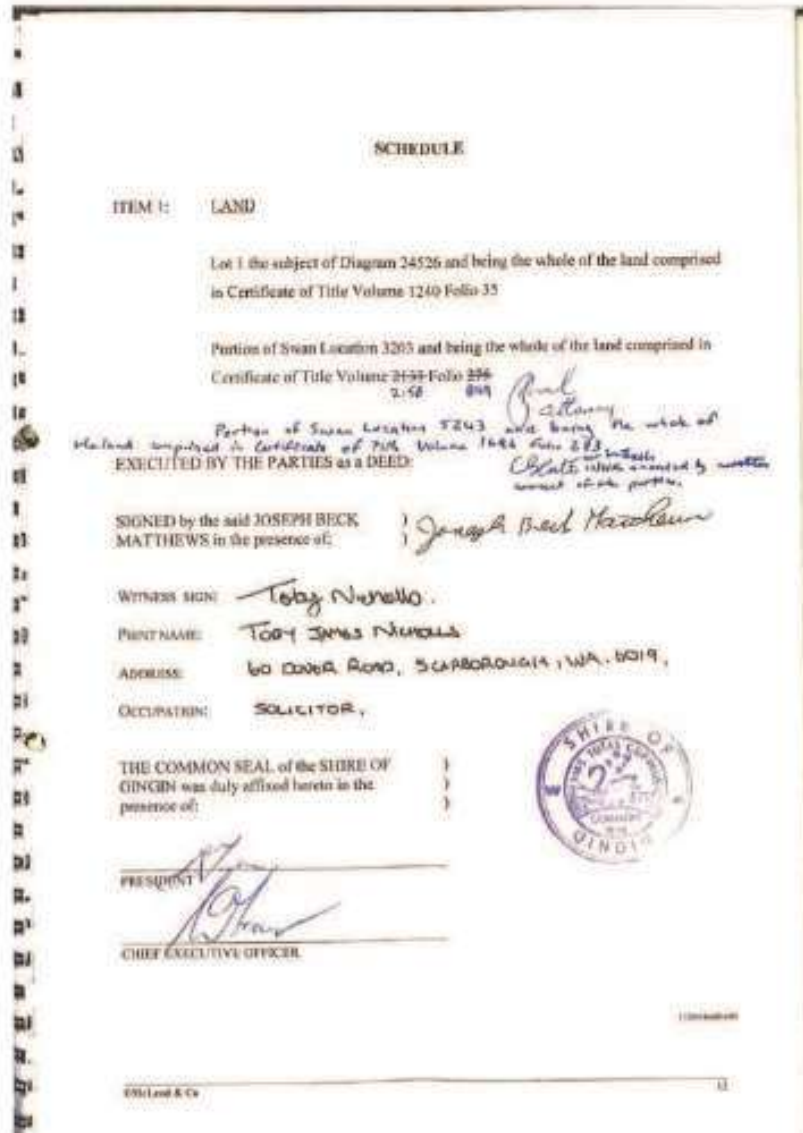 SCHEDULE
ITEM 1: LAND
Lot 1 the subject of Diagram 24526 and being the whole of the land comprised
in Certificate of Title Volume 1240 Folio 35
Portion of Swan Location 3203 and being the whole of the land comprised in
Certificate of Title Volume 2133 Folio
Portion of Swan Location 5243 and being the whole of
the land comprised in Certificate of Title Volume Folio 283
EXECUTED BY THE PARTIES as a DEED:
amended by
consent of the parties.
SIGNED by the said JOSEPH BECK )
MATTHEWS in the presence of: )
Joseph Beck Matthews
WITNESS SIGN: Toby Nicholls.
PRINT NAME: TOBY JAMES NICHOLLS
ADDRESS: 60 DOVER ROAD, SCARBOROUGH, WA. 6019,
OCCUPATION: SOLICITOR,
THE COMMON SEAL of the SHIRE OF )
GINGIN was duly affixed hereto in the )
presence of: )
SHIRE OF
GINGIN
PRESIDENT
CHIEF EXECUTIVE OFFICER
©McLeod & Co